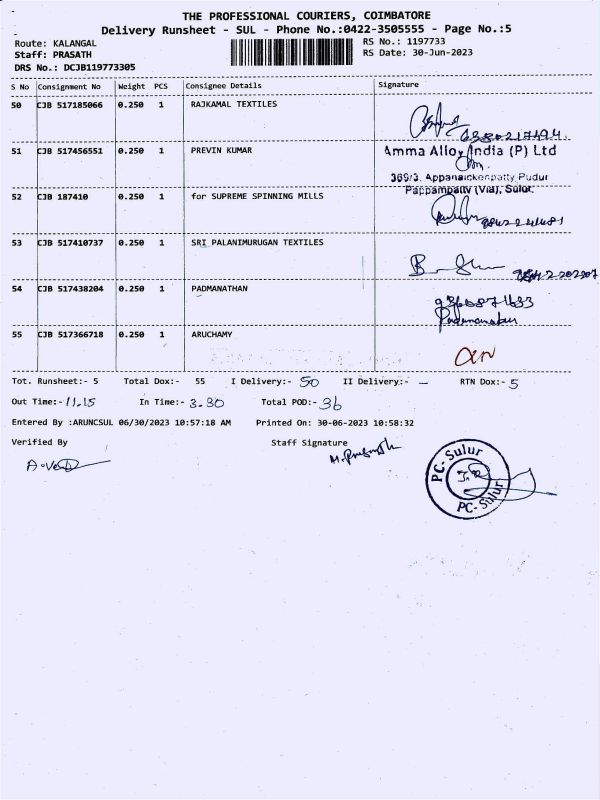 THE PROFESSIONAL COURIERS, COIMBATORE
Delivery Runsheet - SUL - Phone No.:0422-3505555 - Page No.:5
Route: KALANGAL
RS No.: 1197733
Staff: PRASATH
RS Date: 30-Jun-2023
DRS No.: DCJB119773305
S No Consignment No Weight PCS Consignee Details Signature
50 CJB 517185066 0.250 1 RAJKAMAL TEXTILES
51 CJB 517456551 0.250 1 PREVIN KUMAR Amma Alloy India (P) Ltd
369/3, Appanaickenpatty Pudur
Pappampatty (Via), Sulur.
52 CJB 187410 0.250 1 for SUPREME SPINNING MILLS
53 CJB 517410737 0.250 1 SRI PALANIMURUGAN TEXTILES
54 CJB 517438204 0.250 1 PADMANATHAN
55 CJB 517366718 0.250 1 ARUCHAMY
Tot. Runsheet:- 5 Total Dox:- 55 I Delivery:- 50 II Delivery:- - RTN Dox:- 5
Out Time:- 11.15 In Time:- 3.30 Total POD:- 36
Entered By :ARUNCSUL 06/30/2023 10:57:18 AM Printed On: 30-06-2023 10:58:32
Verified By Staff Signature
M. Prasath
PC-Sulur
PC-Sulur